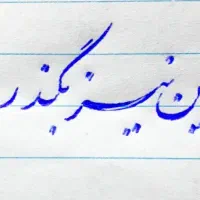 ین نیز بگذر